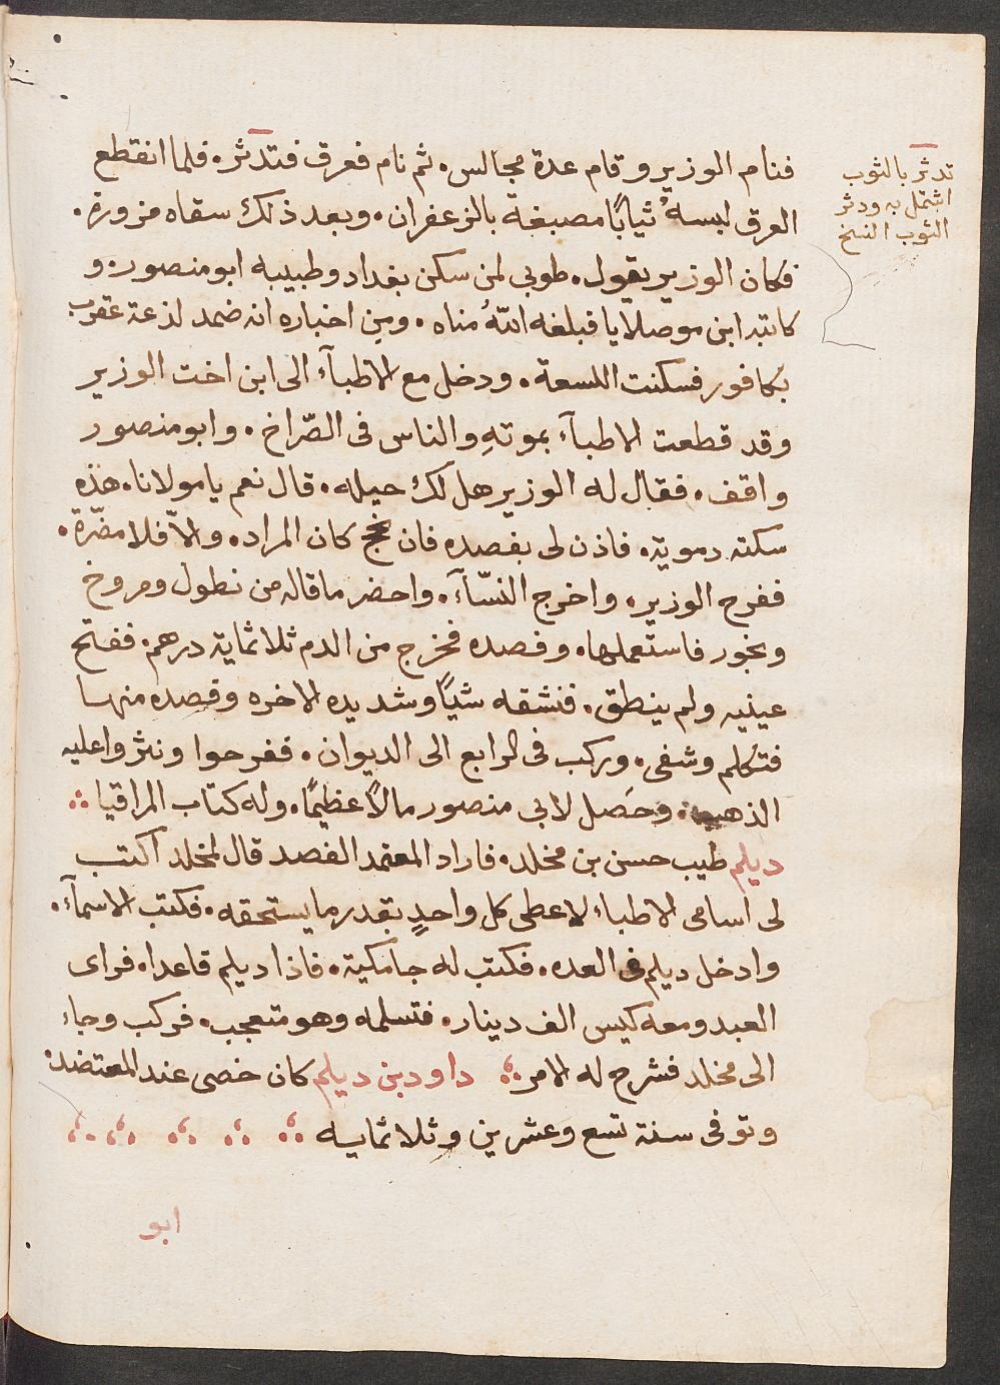 فنام الوزير وقام عدة مجالس. ثم نام فعرق فتدثر. فلما انقطع
العرق لبسهُ ثيابًا مصبغة بالزعفران. وبعد ذلك سقاه مزورة.
فكان الوزير يقول. طوبى لمن سكن بغداد وطبيبه ابو منصور. و
كاتبه ابن موصلايا فبلغه اللّهُ مناه. ومن اخباره انه ضمد لذعة عقرب
بكافور فسكنت اللسعة. ودخل مع الاطبآء الى ابن اخت الوزير
وقد قطعت الاطبآء بموتهِ والناس فى الصّراخ. وابو منصور
واقف. فقال له الوزير هل لك حيله. قال نعم يا مولانا. هذه
سكته دموية. فاذن لى بفصده فان نجح كان المراد. والاّ فلا مضّرة.
ففرح الوزير. واخرج النسّآء. واحضر ما قاله من نطول ومروخ
وبخور فاستعملها. وفصده فخرج من الدم ثلاثماية درهم. ففتح
عينيه ولم ينطق. فنشقه شيًا وشد يده الاخره وفصده منها
فتكلم وشفى. وركب فى الرابع الى الديوان. ففرحوا ونثروا عليه
الذهب. وحَصل لابى منصور مالاً عظيمًا. وله كتاب المراقيا
ديلم طيب حسن بن مخلد. فاراد المعتمد الفصد قال لمخلد اكتب
لى اسامى الاطباء لاعطى كل واحدٍ بقدر ما يستحقه. فكتب الاسمآء.
وادخل ديلم فى العده. فكتب له جامكية. فاذا ديلم قاعدا. فراى
العبد ومعه كيس الف دينار. فتسلمه وهو متعجب. فركب وجاء
الى مخلد فشرح له الامر داود بن ديلم كان خصى عند المعتضد.
وتوفى سنة تسع وعشرين وثلاثمايه
ابو
تدثر بالثوب
اشتمل به ودثر
الثوب اتسخ